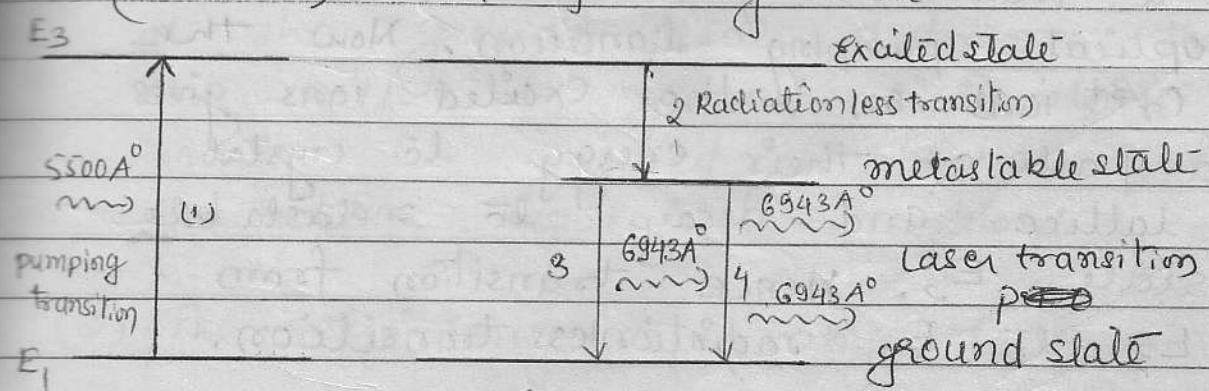 E3
Excited state
2 Radiationless transition
5500A°
metastable state
(1)
6943A°
6943A°
pumping
transition
3
4
Laser transition
6943A°
E1
ground state